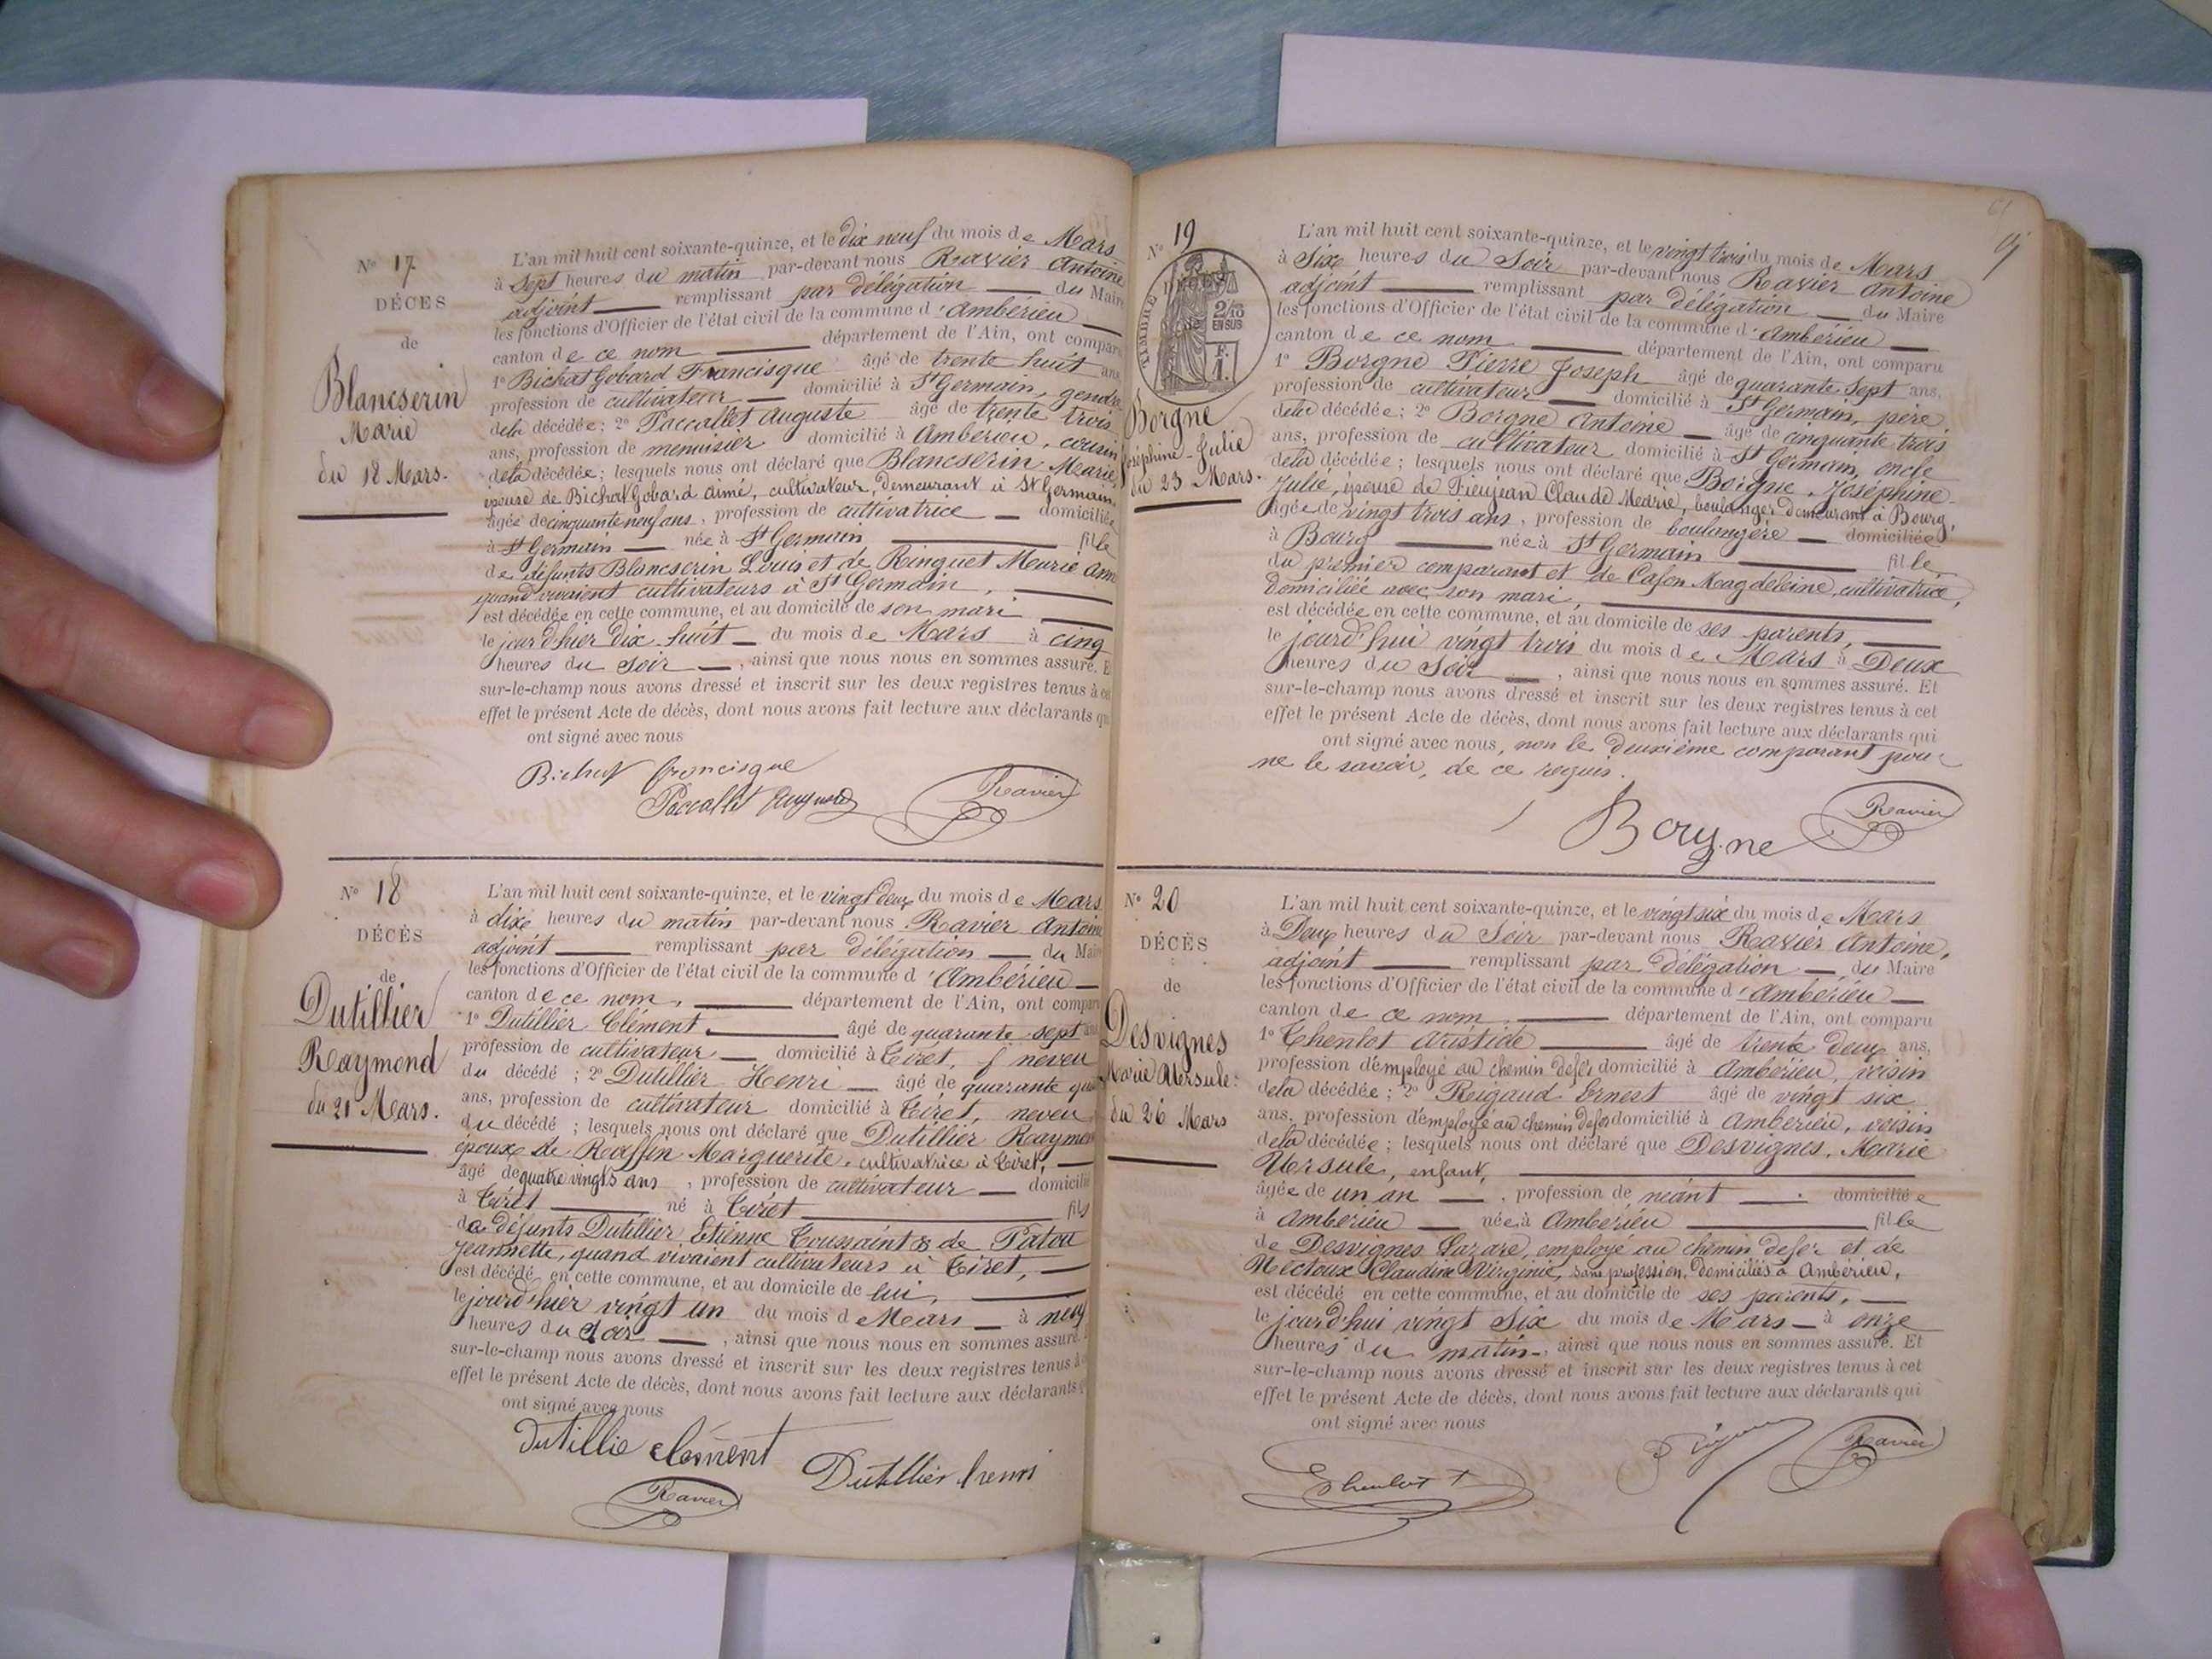 N° 17
DÉCES
de
Blancserin
Marie
du 18 Mars.
L'an mil huit cent soixante-quinze, et le dix neuf du mois de Mars
à Sept heures du matin par-devant nous Ravier Antoine
adjoint remplissant par délégation du Maire
les fonctions d'Officier de l'état civil de la commune d'Ambérieu
canton de ce nom département de l'Ain, ont compar
1° Bichat Gobard Francisque âgé de trente huit ans
profession de cultivateur domicilié à St Germain, gendre
dela décédée; 2° Paccallet Auguste âgé de trente trois
ans, profession de menuisier domicilié à Ambérieu, cousin
dela décédée; lesquels nous ont déclaré que Blancserin Marie,
épouse de Bichat Gobard Aimé, cultivateur, demeurant à St Germain
âgée de cinquante neuf ans, profession de cultivatrice domiciliée
à St Germain née à St Germain fille
de défunts Blancserin Louis et de Ringuet Marie Ann
quand vivaient cultivateurs à St Germain,
est décédée en cette commune, et au domicile de son mari
le jourd'hier dix huit du mois de Mars à cinq
heures du Soir, ainsi que nous nous en sommes assuré. E
sur-le-champ nous avons dressé et inscrit sur les deux registres tenus à ce
effet le présent Acte de décès, dont nous avons fait lecture aux déclarants qu
ont signé avec nous
Bichat francisque
Paccallet Ravier
N° 18
DÉCÈS
de
Dutillier
Raymond
du 21 Mars.
L'an mil huit cent soixante-quinze, et le vingt deux du mois de Mars
à dix heures du matin par-devant nous Ravier Antoine
adjoint remplissant par délégation du Mair
les fonctions d'Officier de l'état civil de la commune d'Ambérieu
canton de ce nom, département de l'Ain, ont compar
1° Dutillier Clément âgé de quarante sept ans
profession de cultivateur domicilié à Tiret, neveu
du décédé; 2° Dutillier Henri âgé de quarante
ans, profession de cultivateur domicilié à Tiret, neveu
du décédé; lesquels nous ont déclaré que Dutillier Raymon
époux de Roffin Marguerite, cultivatrice à Tiret,
âgé de quatre vingts ans, profession de cultivateur domicilié
à Tiret né à Tiret fils
de défunts Dutillier Etienne Toussaint & de Patou
Jeannette, quand vivaient cultivateurs à Tiret,
est décédé en cette commune, et au domicile de lui,
le jourd'hier vingt un du mois de Mars à neuf
heures du Soir, ainsi que nous nous en sommes assuré.
sur-le-champ nous avons dressé et inscrit sur les deux registres tenus à
effet le présent Acte de décès, dont nous avons fait lecture aux déclarants q
ont signé avec nous
Dutillie clément
Dutillier henri
Ravier
N° 19
TIMBRE
2/10
EN SUS
F.
1.
Borgne
Joséphine-Julie
du 23 Mars.
L'an mil huit cent soixante-quinze, et le vingt trois du mois de Mars
à Six heures du Soir par-devant nous Ravier Antoine
adjoint remplissant par délégation du Maire
les fonctions d'Officier de l'état civil de la commune d'Ambérieu
canton de ce nom département de l'Ain, ont comparu
1° Borgne Pierre Joseph âgé de quarante sept ans,
profession de cultivateur domicilié à St Germain, père
dela décédée; 2° Borgne Antoine âgé de cinquante trois
ans, profession de cultivateur domicilié à St Germain, oncle
dela décédée; lesquels nous ont déclaré que Borgne, Joséphine-
Julie, épouse de Fieujean Claude Marie, boulanger demeurant à Bourg,
âgée de vingt trois ans, profession de boulangère domiciliée
à Bourg née à St Germain fille
du premier comparant et de Cason Magdeleine, cultivatrice,
domiciliée avec son mari,
est décédée en cette commune, et au domicile de ses parents,
le jourd'hui vingt trois du mois de Mars à Deux
heures du Soir, ainsi que nous nous en sommes assuré. Et
sur-le-champ nous avons dressé et inscrit sur les deux registres tenus à cet
effet le présent Acte de décès, dont nous avons fait lecture aux déclarants qui
ont signé avec nous, non le deuxième comparant pour
ne le savoir, de ce requis.
Borgne
Ravier
N° 20
DÉCÈS
de
Desvignes
Marie Ursule.
du 26 Mars
L'an mil huit cent soixante-quinze, et le vingt six du mois de Mars
à Deux heures du Soir par-devant nous Ravier Antoine,
adjoint remplissant par délégation du Maire
les fonctions d'Officier de l'état civil de la commune d'Ambérieu
canton de ce nom département de l'Ain, ont comparu
1° Thenlot Aristide âgé de trente deux ans,
profession d'employé au chemin de fer domicilié à Ambérieu, voisin
dela décédée; 2° Reigaud Ernest âgé de vingt six
ans, profession d'employé au chemin de fer domicilié à Ambérieu, voisin
dela décédée; lesquels nous ont déclaré que Desvignes, Marie
Ursule, enfant,
âgée de un an, profession de néant domiciliée
à Ambérieu née à Ambérieu fille
de Desvignes Lazare, employé au chemin de fer et de
Nectoux Claudine Virginie, sans profession, domiciliés à Ambérieu,
est décédé en cette commune, et au domicile de ses parents,
le jourd'hui vingt Six du mois de Mars à onze
heures du matin, ainsi que nous nous en sommes assuré. Et
sur-le-champ nous avons dressé et inscrit sur les deux registres tenus à cet
effet le présent Acte de décès, dont nous avons fait lecture aux déclarants qui
ont signé avec nous
Ravier